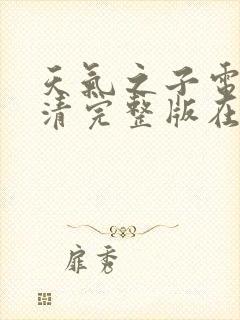 天氣之子電
清完整版在
扉秀